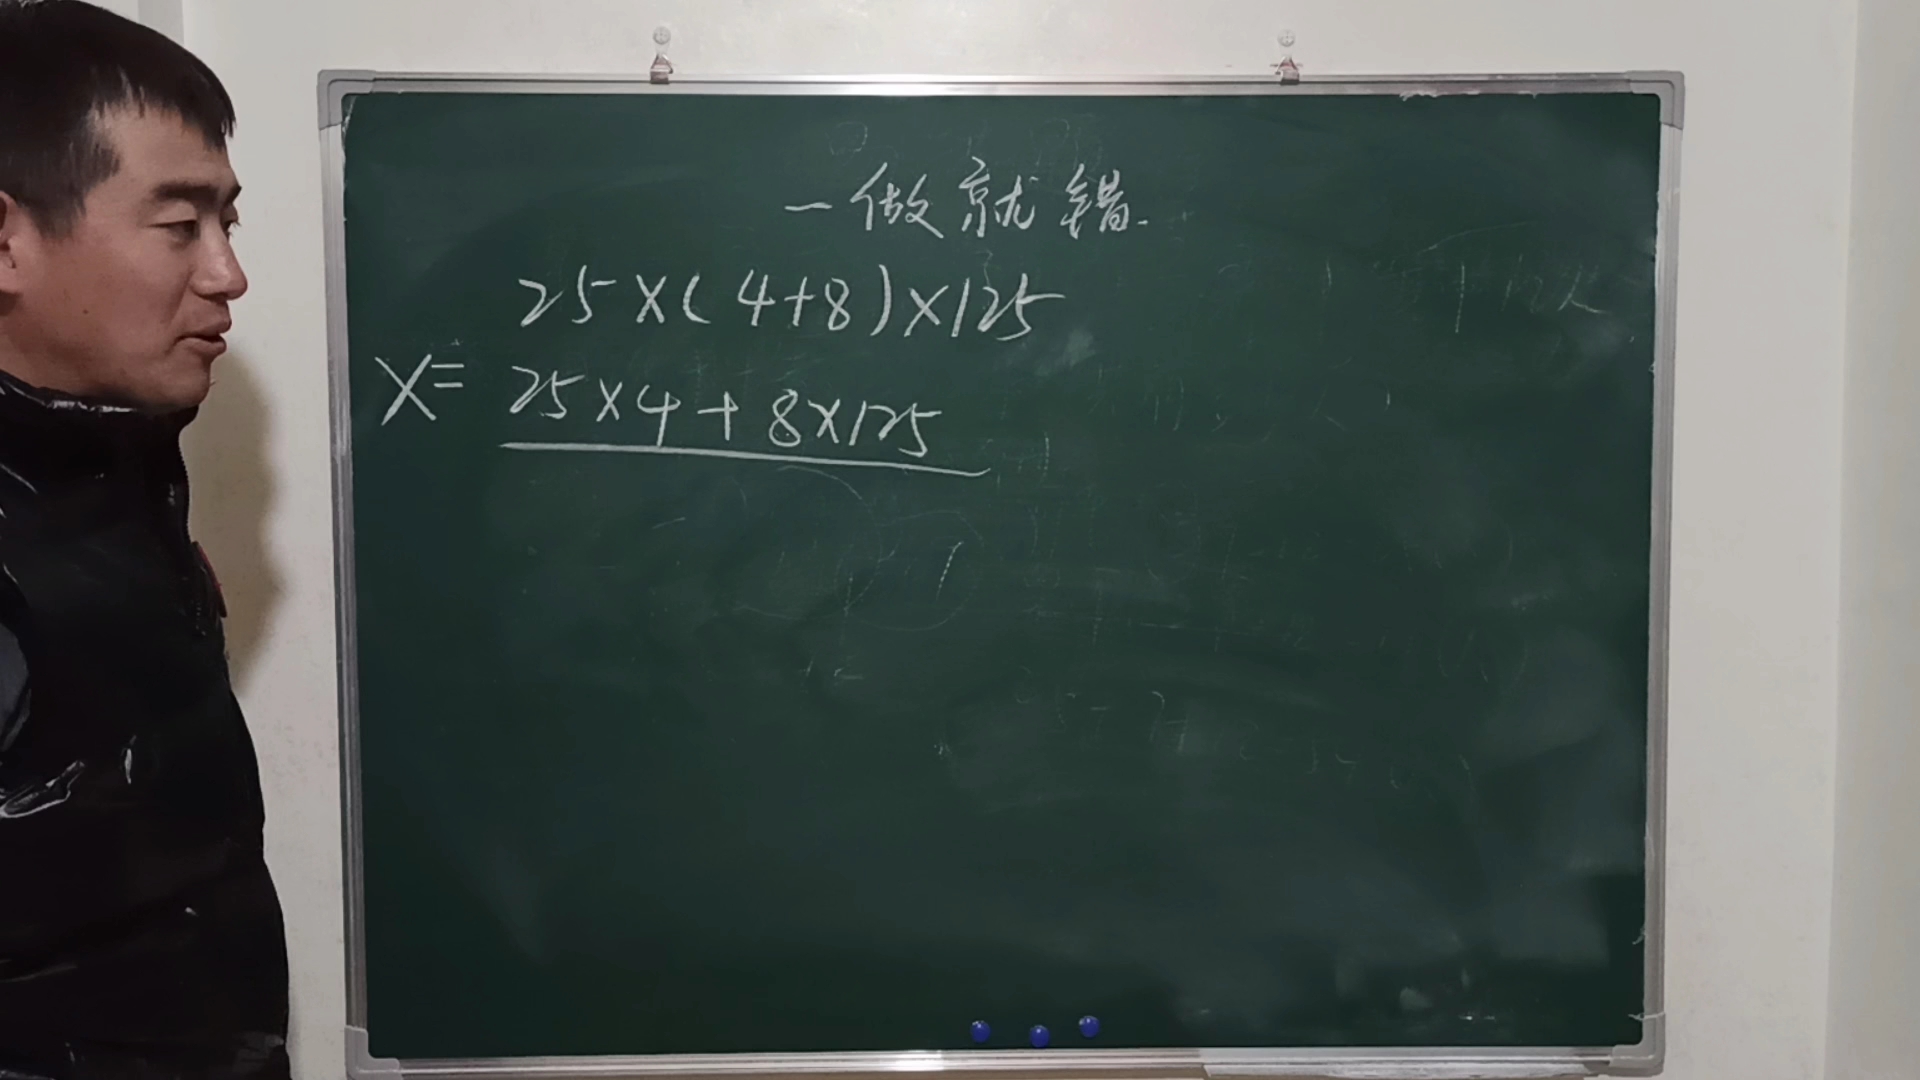 一做就错.
25×(4+8)×125
×= 25×4+8×125